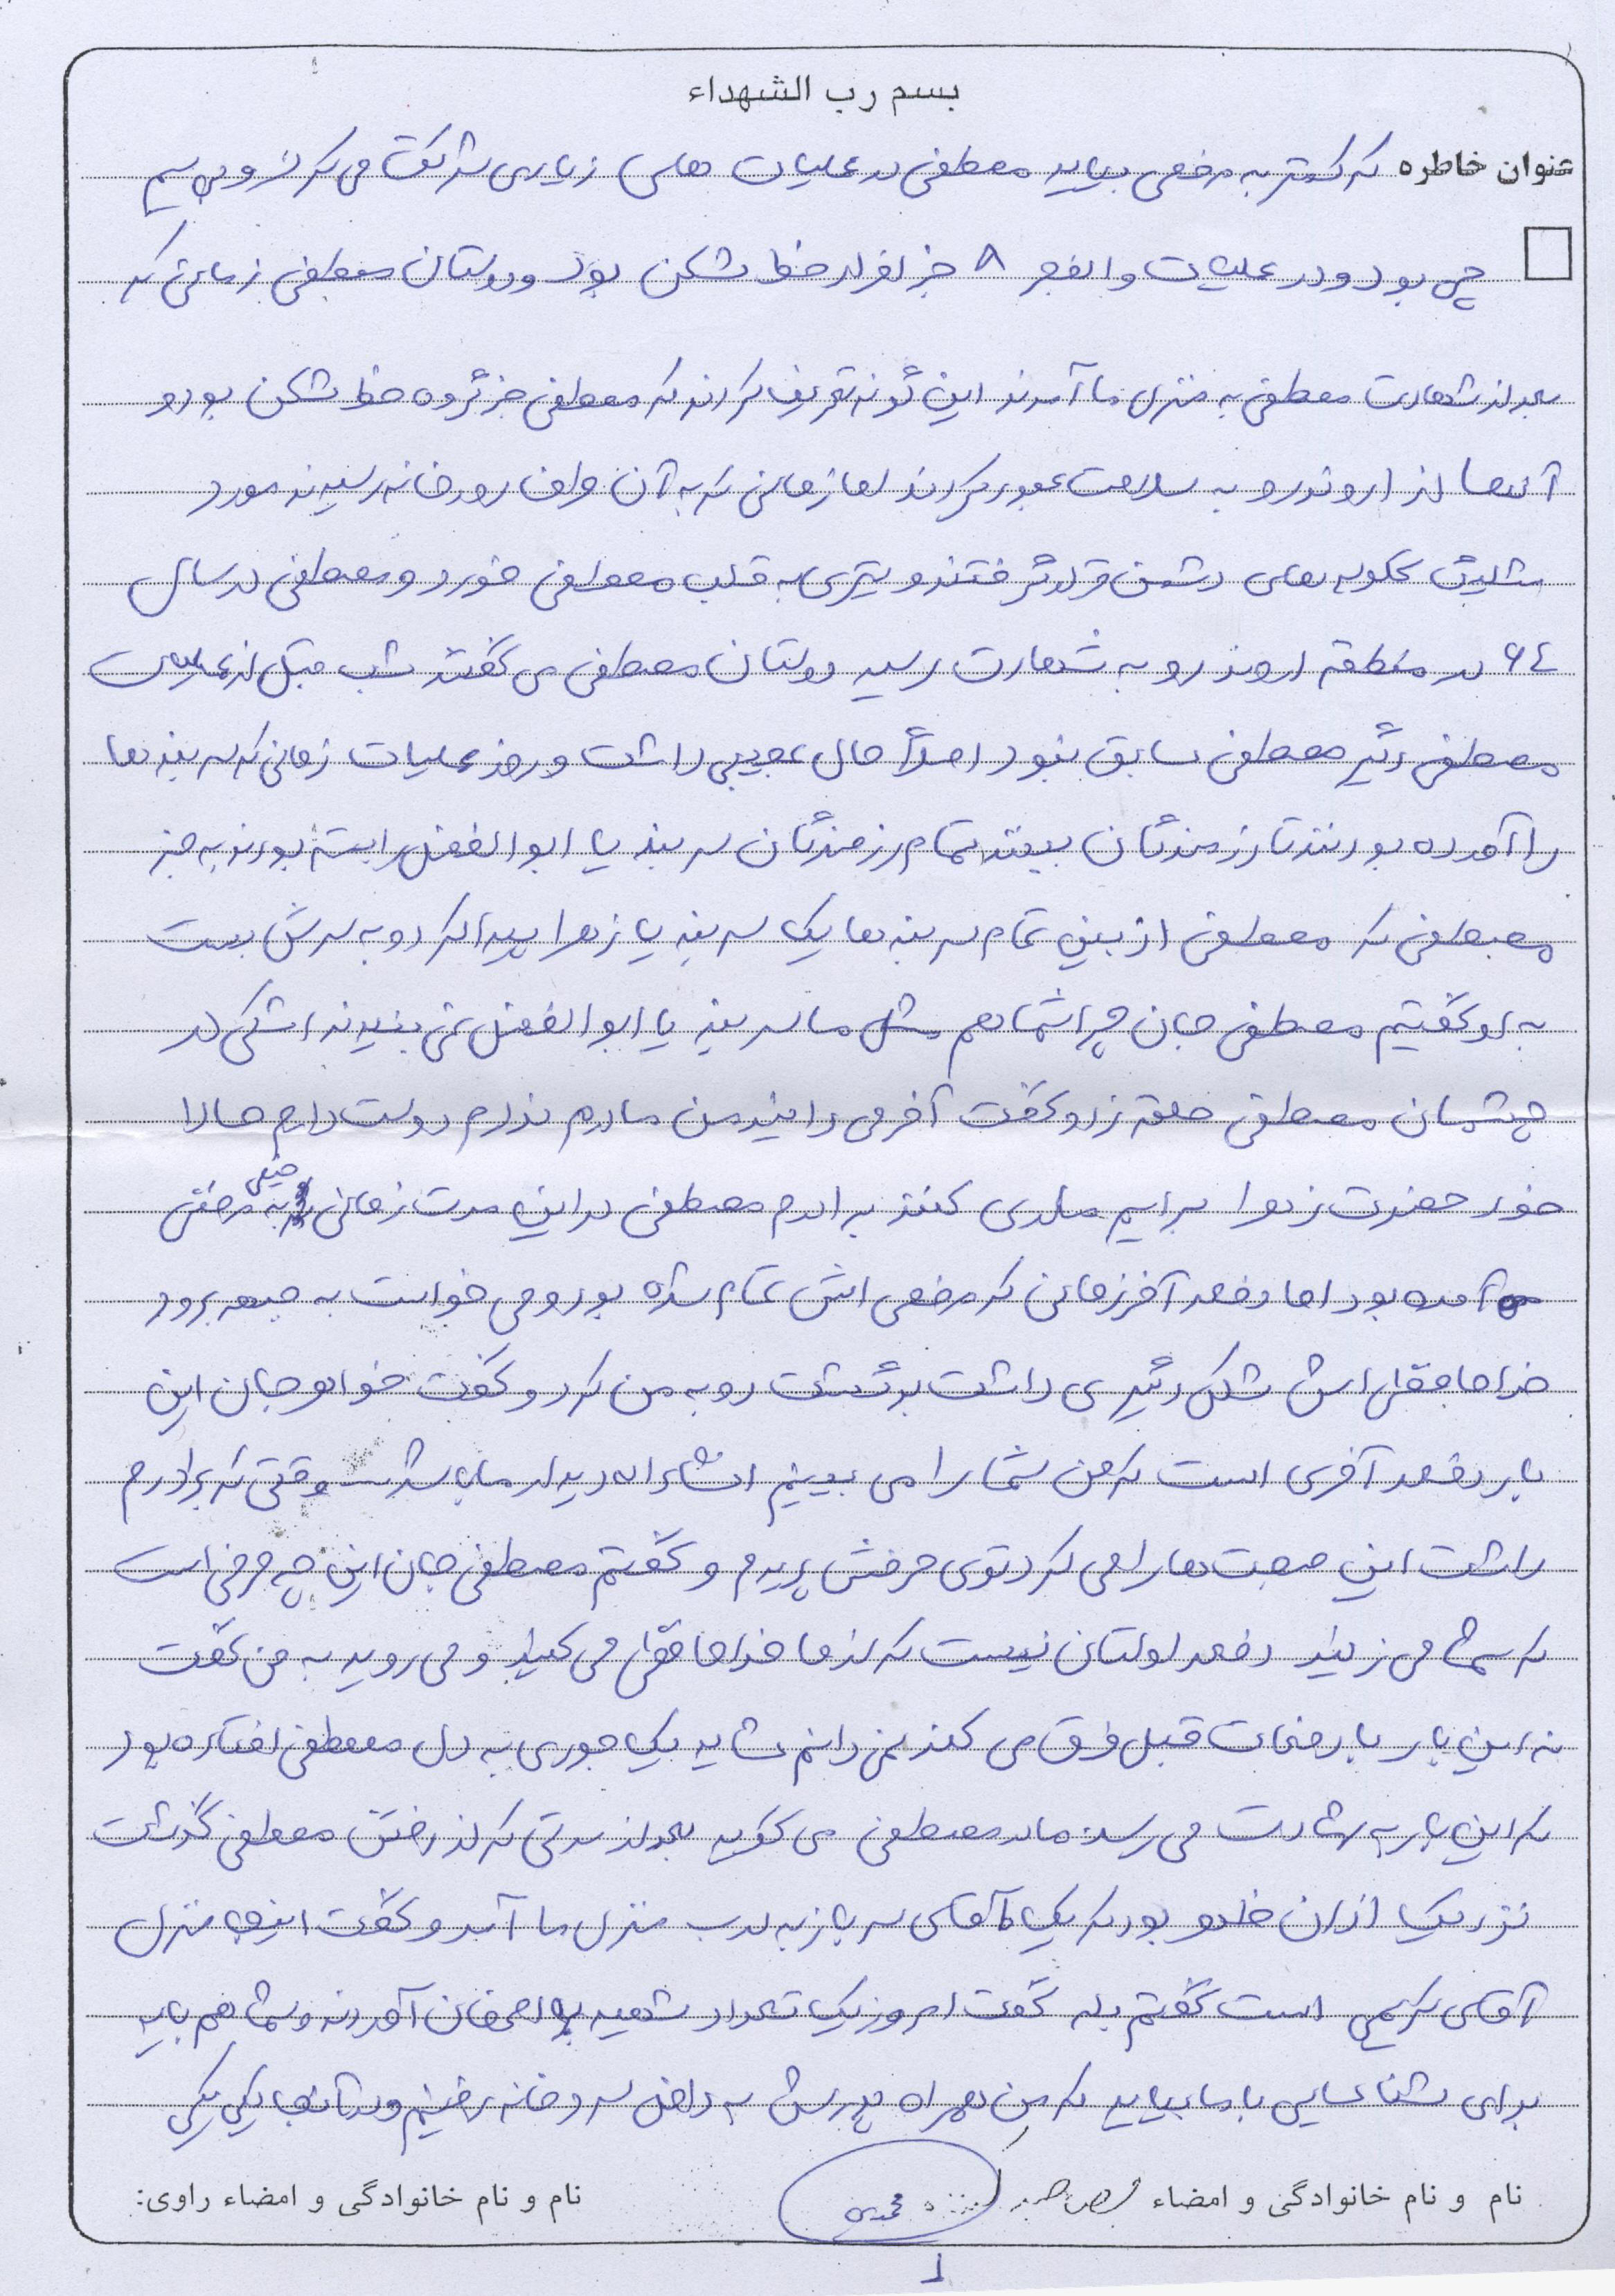 بسم رب الشهداء
عنوان خاطره که کمتر به مرخصی بیاید مصطفی در عملیات های زیادی شرکت می کردند و بی سیم
چی بود و در عملیات والفجر ۸ جز افراد خط شکن بود و دوستان مصطفی زمانی که
بعد از شهادت مصطفی به منزل ما آمدند این گونه تعریف کردند که مصطفی جز گروه خط شکن بود و
آنها از اروندرود به سلامت عبور کردند اما زمانی که به آن طرف رودخانه رسیدند مورد
شلیک گلوله های دشمن قرار گرفتند و تیری به قلب مصطفی خورد و مصطفی در سال
۶۴ در منطقه اروندرود به شهادت رسید دوستان مصطفی می گفتند شب قبل از عملیات
مصطفی دیگر مصطفی سابق نبود اصلاً حال عجیبی داشت و روز عملیات زمانی که سربندها
را آورده بودند تا رزمندگان ببندند تمام رزمندگان سربند یا ابوالفضل را بسته بودند به جز
مصطفی که مصطفی از بین تمام سربندها یک سربند یا زهرا پیدا کرد و به سرش بست
به او گفتیم مصطفی جان چرا شما هم مثل ما سربند یا ابوالفضل نمی بندید اشک در
چشمان مصطفی حلقه زد و گفت آخر می دانید من مادرم ندارم دوست دارم حالا
خود حضرت زهرا برایم مادری کنند برادرم مصطفی در این مدت زمانی خیلی به مرخصی
آمده بود اما دفعه آخر زمانی که مرخصی اش تمام شده بود و می خواست به جبهه برود
خداحافظی اش شکل دیگری داشت برگشت رو به من کرد و گفت خواهر جان این
بار دفعه آخری است که من شما را می بینم انشاءاله دیدار ما با شد وقتی که برادرم
داشت این صحبت ها را می کرد توی حرفش پریدم و گفتم مصطفی جان این چه حرفی است
که شما می زنید دفعه اولتان نیست که از ما خداحافظی می کنید و می روید به من گفت
نه این بار با دفعات قبل فرق می کند نمی دانم شاید یک جوری به دل مصطفی افتاده بود
که این بار به شهادت می رسد مادر مصطفی می گوید بعد از مدتی که از رفتن مصطفی گذشت
نزدیک اذان ظهر بود که یک آقای سرباز به درب منزل ما آمد و گفت اینجا منزل
آقای کریمی است گفتم بله گفت امروز یک تعداد شهید به اصفهان آوردند و شما هم باید
برای شناسایی با ما بیایید که من همراه پدرش به داخل سردخانه رفتیم و یکی یکی
نام و نام خانوادگی و امضاء
نام و نام خانوادگی و امضاء راوی:
۱